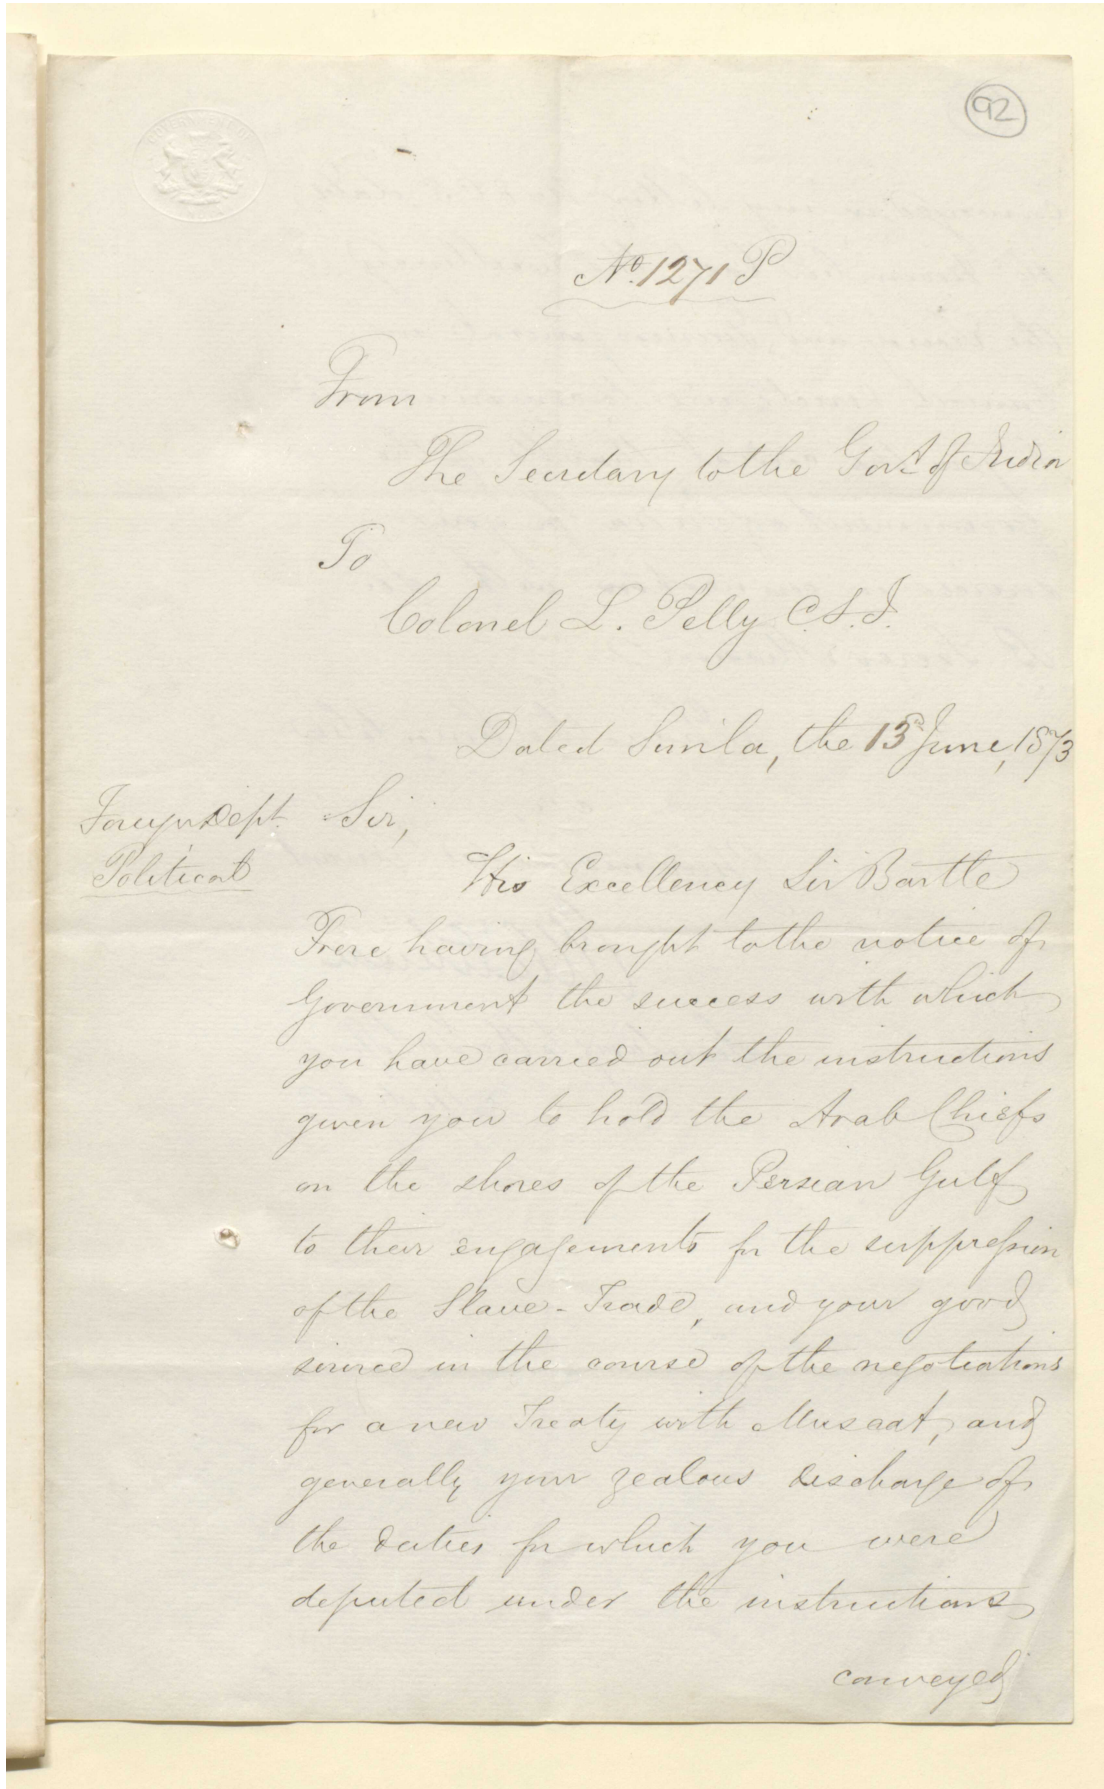 92
No. 1271 P
From
The Secretary to the Govt. of India
To
Colonel L. Pelly C.S.I.
Dated Simla, the 13th June, 1873
Foreign Dept.
Political
Sir,
His Excellency Sir Bartle
Frere having brought to the notice of
Government the success with which
you have carried out the instructions
given you to hold the Arab Chiefs
on the shores of the Persian Gulf
to their engagements for the suppression
of the Slave-Trade, and your good
service in the course of the negotiations
for a new Treaty with Muscat, and
generally your zealous discharge of
the duties for which you were
deputed under the instructions
conveyed